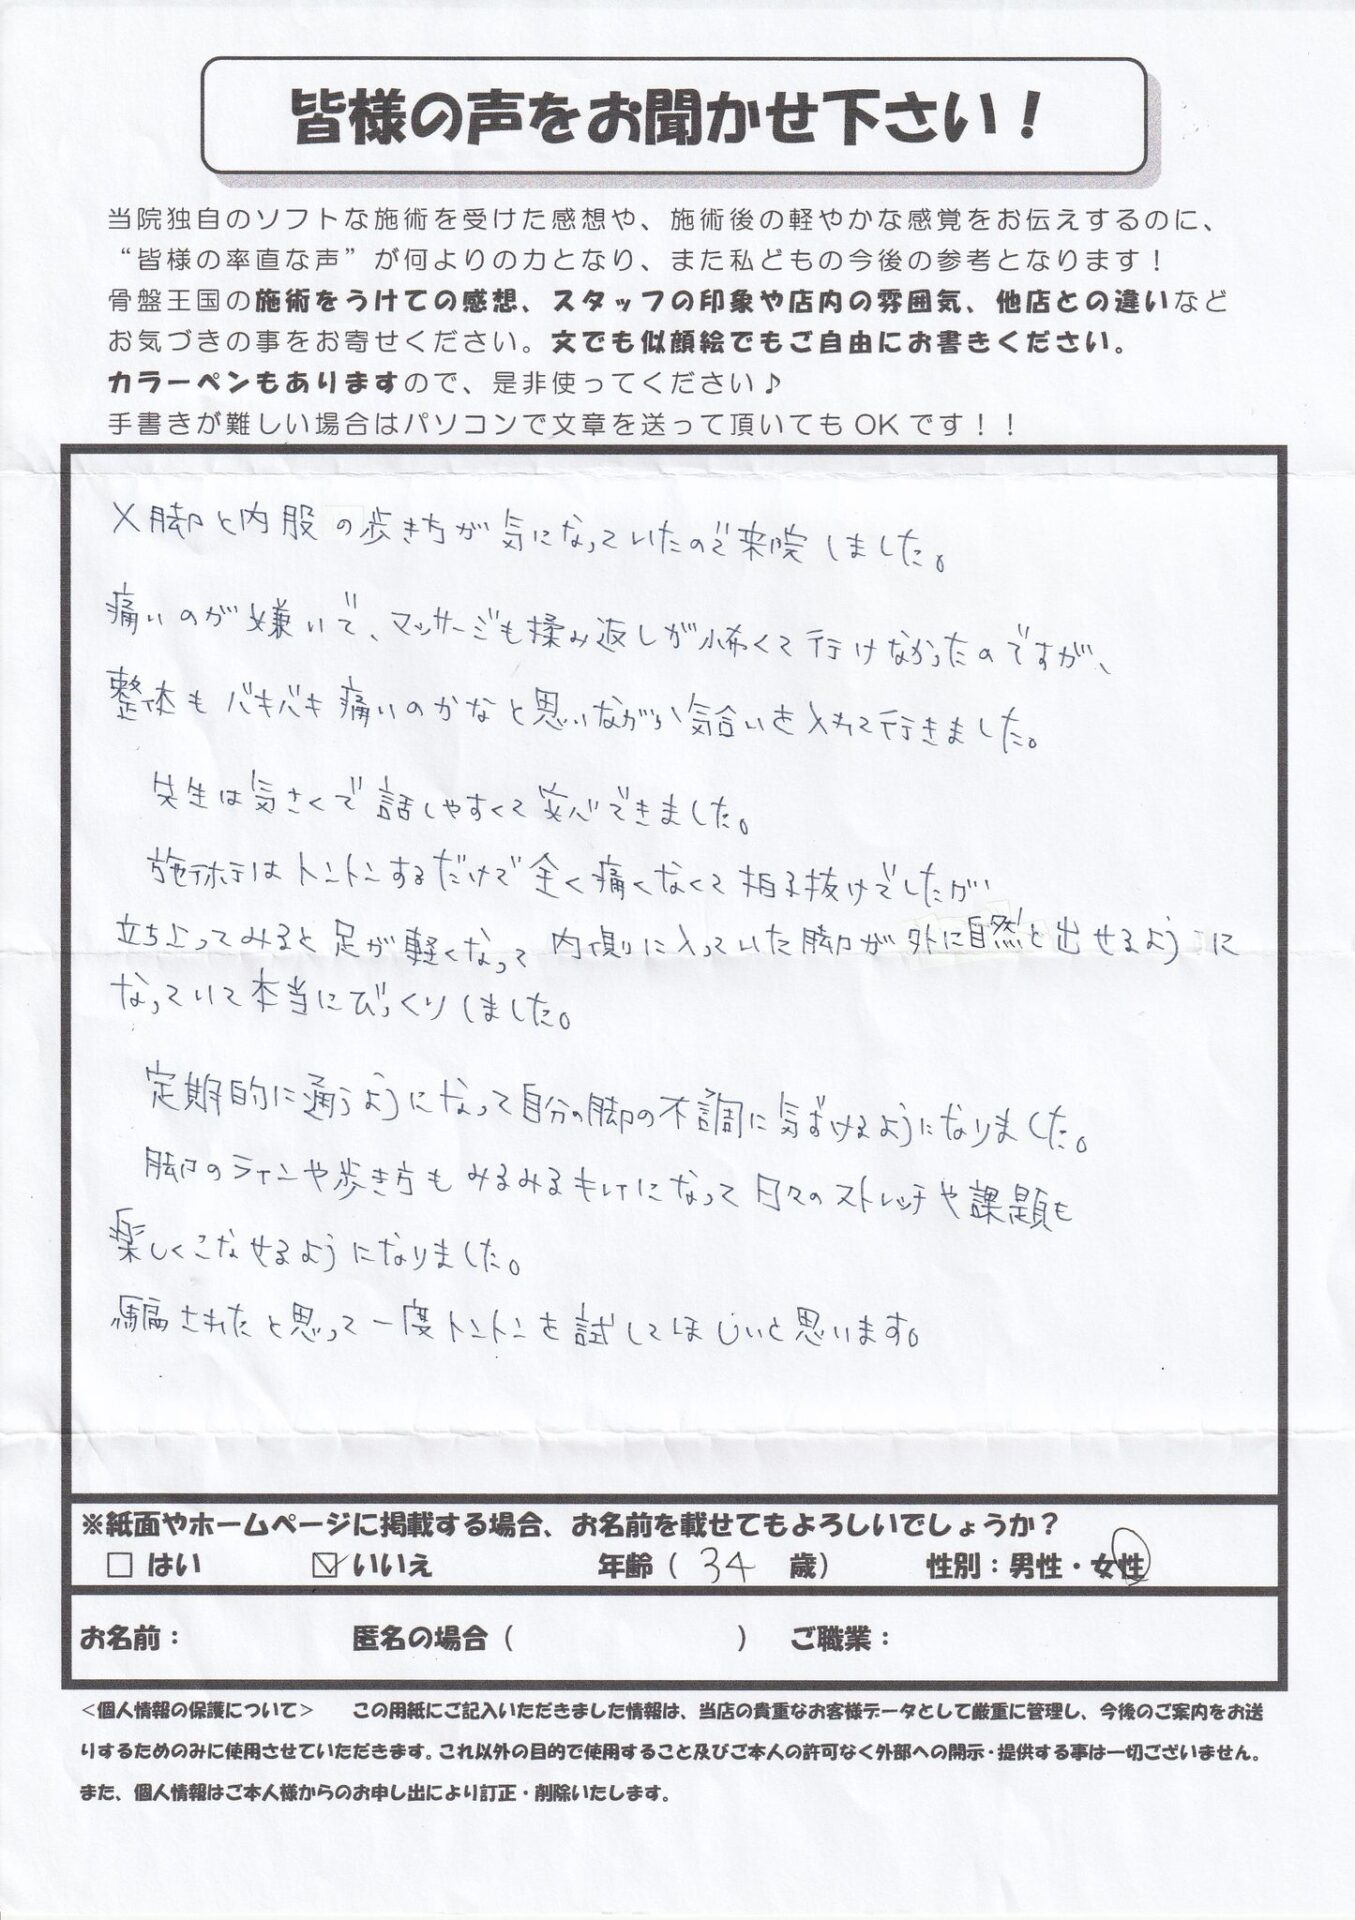 皆様の声をお聞かせ下さい！
当院独自のソフトな施術を受けた感想や、施術後の軽やかな感覚をお伝えするのに、
“皆様の率直な声”が何よりの力となり、また私どもの今後の参考となります！
骨盤王国の施術をうけての感想、スタッフの印象や店内の雰囲気、他店との違いなど
お気づきの事をお寄せください。文でも似顔絵でもご自由にお書きください。
カラーペンもありますので、是非使ってください♪
手書きが難しい場合はパソコンで文章を送って頂いてもOKです！！
X脚と内股の歩き方が気になっていたので来院しました。
痛いのが嫌いで、マッサージも揉み返しが怖くて行けなかったのですが、
整体もバキバキ痛いのかなと思いながら気合いを入れて行きました。
先生は気さくで話しやすくて安心できました。
施術はトントンするだけで全く痛くなくて拍子抜けでしたが
立ち上ってみると足が軽くなって内側に入っていた脚が外に自然と出せるように
なっていて本当にびっくりしました。
定期的に通うようになって自分の脚の不調に気づけるようになりました。
脚のラインや歩き方もみるみるキレイになって日々のストレッチや課題も
楽しくこなせるようになりました。
騙されたと思って一度トントンを試してほしいと思います。
※紙面やホームページに掲載する場合、お名前を載せてもよろしいでしょうか？
□ はい ☑ いいえ 年齢（ 34 歳） 性別：男性・女性
お名前： 匿名の場合（ ） ご職業：
＜個人情報の保護について＞ この用紙にご記入いただきました情報は、当店の貴重なお客様データとして厳重に管理し、今後のご案内をお送
りするためのみに使用させていただきます。これ以外の目的で使用すること及びご本人の許可なく外部への開示・提供する事は一切ございません。
また、個人情報はご本人様からのお申し出により訂正・削除いたします。